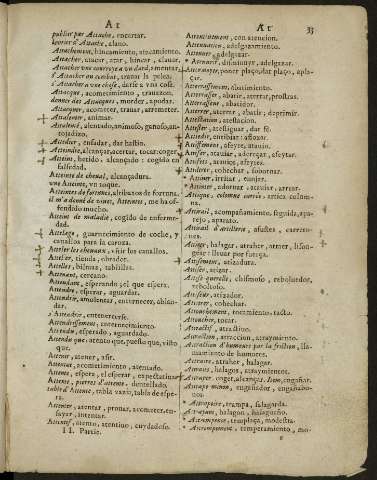 A t
publier par Attache, encartar.
levrier d'Attache, alano.
Attachement, hincamiento, atacamiento.
Attacher, atacar, atar, hincar, clauar.
Attacher vne couroye a vn dard, amentar.
s'Attacher au combat, trauar la pelea.
s'Attacher a vne chose, darse a vna cosa.
Attaque, acometimiento, trauazon.
donner des Attaques, morder, apudar.
Attaquer, acometer, trauar, arremeter.
Attalenter, animar.
Attalenté, alentado, animoso, ganoso, an-
tojadizo.
Attedier, enfadar, dar hastio.
Atteindre, alcançar, acertar, tocar, coger.
Atteint, herido, alcançado: cogido en
falsedad.
Atteinte de cheual, alcançadura.
vne Atteinte, vn toque.
Atteintes de fortune, altibaxos de fortuna.
il m'a donné de viues Atteintes, me ha of-
fendido mucho.
Atteint de maladie, cogido de enferme-
dad.
Attelage, guarnecimiento de coche, y
cauallos para la caroza.
Atteler les cheuaux, vñir los cauallos.
Attelier, tienda, obrador.
Attelles, bilmas, tablillas.
Attenant, cercano.
Attendant, esperando, el que espera.
Attendre, esperar, aguardar.
Attendrir, amolentar, enternecer, ablan-
dar.
s'Attendrir, enternecerse.
Attendrissement, enternecimiento.
Attendu, esperado, aguardado.
Attendu que, atento que, puesto que, visto
que.
Attenir, atener, asir.
Attentat, acometimiento, atentado.
Attente, espera, el esperar, expectatiua.
Attente, pierres d'attente, dentellado.
table d'Attente, tabla vazia, tabla de espe-
ra.
Attenter, atentar, prouar, acometer, en-
sayar, intentar.
Attentif, atento, atentiuo, cuydadoso.
II. Partie.
A t
33
Attentiuement, con atencion.
Attenuation, adelgazamiento.
Attenué, adelgazado.
Attenuer, disminuyr, adelgazar.
Atterminer, poner plaço, dar plaço, apla-
çar.
Atterrassement, abatimiento.
Atterrasser, abatir, aterrar, prostrar.
Atterrasseur, abatidor.
Atterrer, aterrar, abatir, deprimir.
Attestation, atestacion.
Attester, atestiguar, dar fè.
Attiedir, entibiar, afloxar.
Attiffement, afeyte, atauio.
Attiffer, atauiar, adereçar, afeytar.
Attiffets, atauios, afeytes.
Attiltrer, cohechar, sobornar.
Attiner, irritar, tunjer.
Attinter, adornar, atauiar, arrear.
Attique, colonne carrée, attica colum-
na.
Attirail, acompañamiento, seguida, apa-
rejo, aparato.
Attirail d'artillerie, afustes, carreto-
nes.
Attirer, halagar, atraher, atraer, lison-
gear: lleuar por fuerça.
Attisement, atizadura.
Attiser, atizar.
Attise-querelle, chismoso, reboluedor,
reboltoso.
Attiseur, atizador.
Attitrer, cohechar.
Attouchement, tocamiento, tacto.
Attoucher, tocar.
Attractif, attractiuo.
Attraction, attraccion, atraymiento.
Attraction d'humeurs par la friction, lla-
mamiento de humores.
Attraire, atraher, halagar.
Attraits, halagos, atraymientos.
Attraper, coger, alcançar. Item, engañar.
Attrape minon, engañador, engañabo-
uos.
Attrapoire, trampa, salagarda.
Attrayant, halagon, halagueño.
Attrempance, templaça, modestia.
Attrempement, temperamiento, mo-